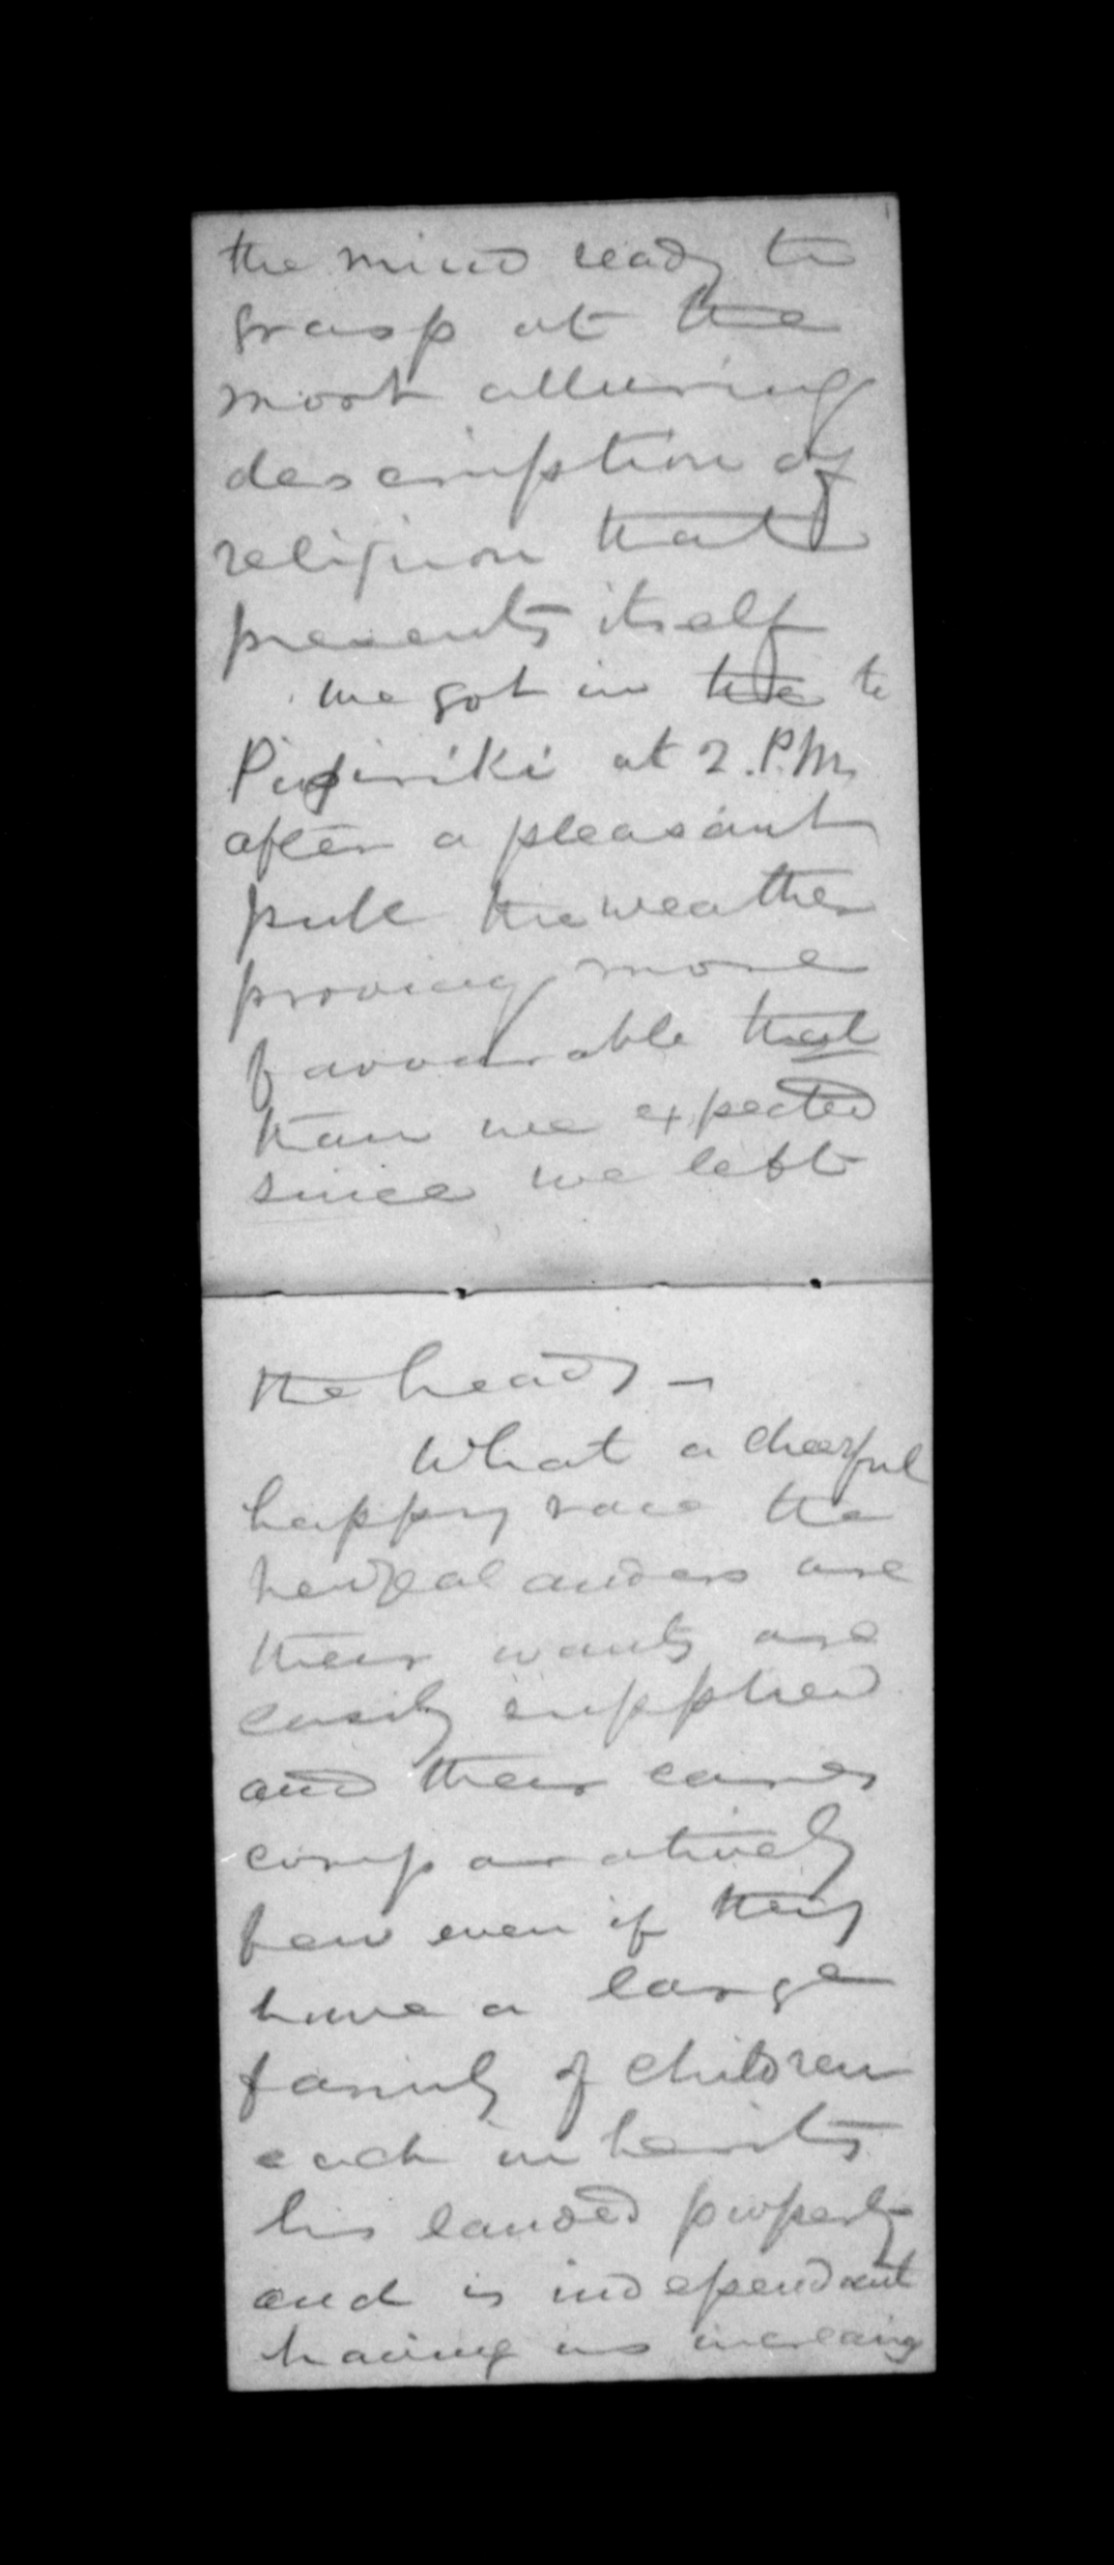 the mind ready to
grasp at the
most alluring
description of
religion that
presents itself
we got in the to
Pipiriki at 2.P.M.
after a pleasant
pull the weather
proving more
favourable that
than we expected
since we left
the heads –
What a cheerful
happy race the
newzealanders are
their wants are
easily supplied
and their cares
comparatively
few even if they
have a large
family of children
each inherits
his landed property
and is independant
having no increasing